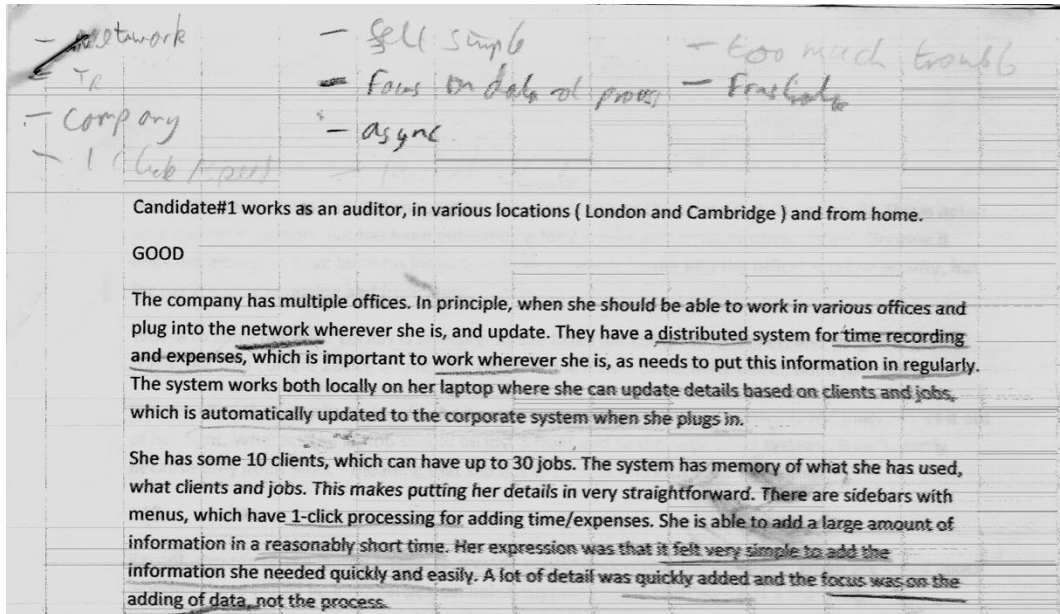 - Network - felt simple - too much trouble
- TR - Focus on data not process - Frustrate
- Company - async
- 1 click/speed
Candidate#1 works as an auditor, in various locations ( London and Cambridge ) and from home.
GOOD
The company has multiple offices. In principle, when she should be able to work in various offices and
plug into the network wherever she is, and update. They have a distributed system for time recording
and expenses, which is important to work wherever she is, as needs to put this information in regularly.
The system works both locally on her laptop where she can update details based on clients and jobs,
which is automatically updated to the corporate system when she plugs in.
She has some 10 clients, which can have up to 30 jobs. The system has memory of what she has used,
what clients and jobs. This makes putting her details in very straightforward. There are sidebars with
menus, which have 1-click processing for adding time/expenses. She is able to add a large amount of
information in a reasonably short time. Her expression was that it felt very simple to add the
information she needed quickly and easily. A lot of detail was quickly added and the focus was on the
adding of data, not the process.